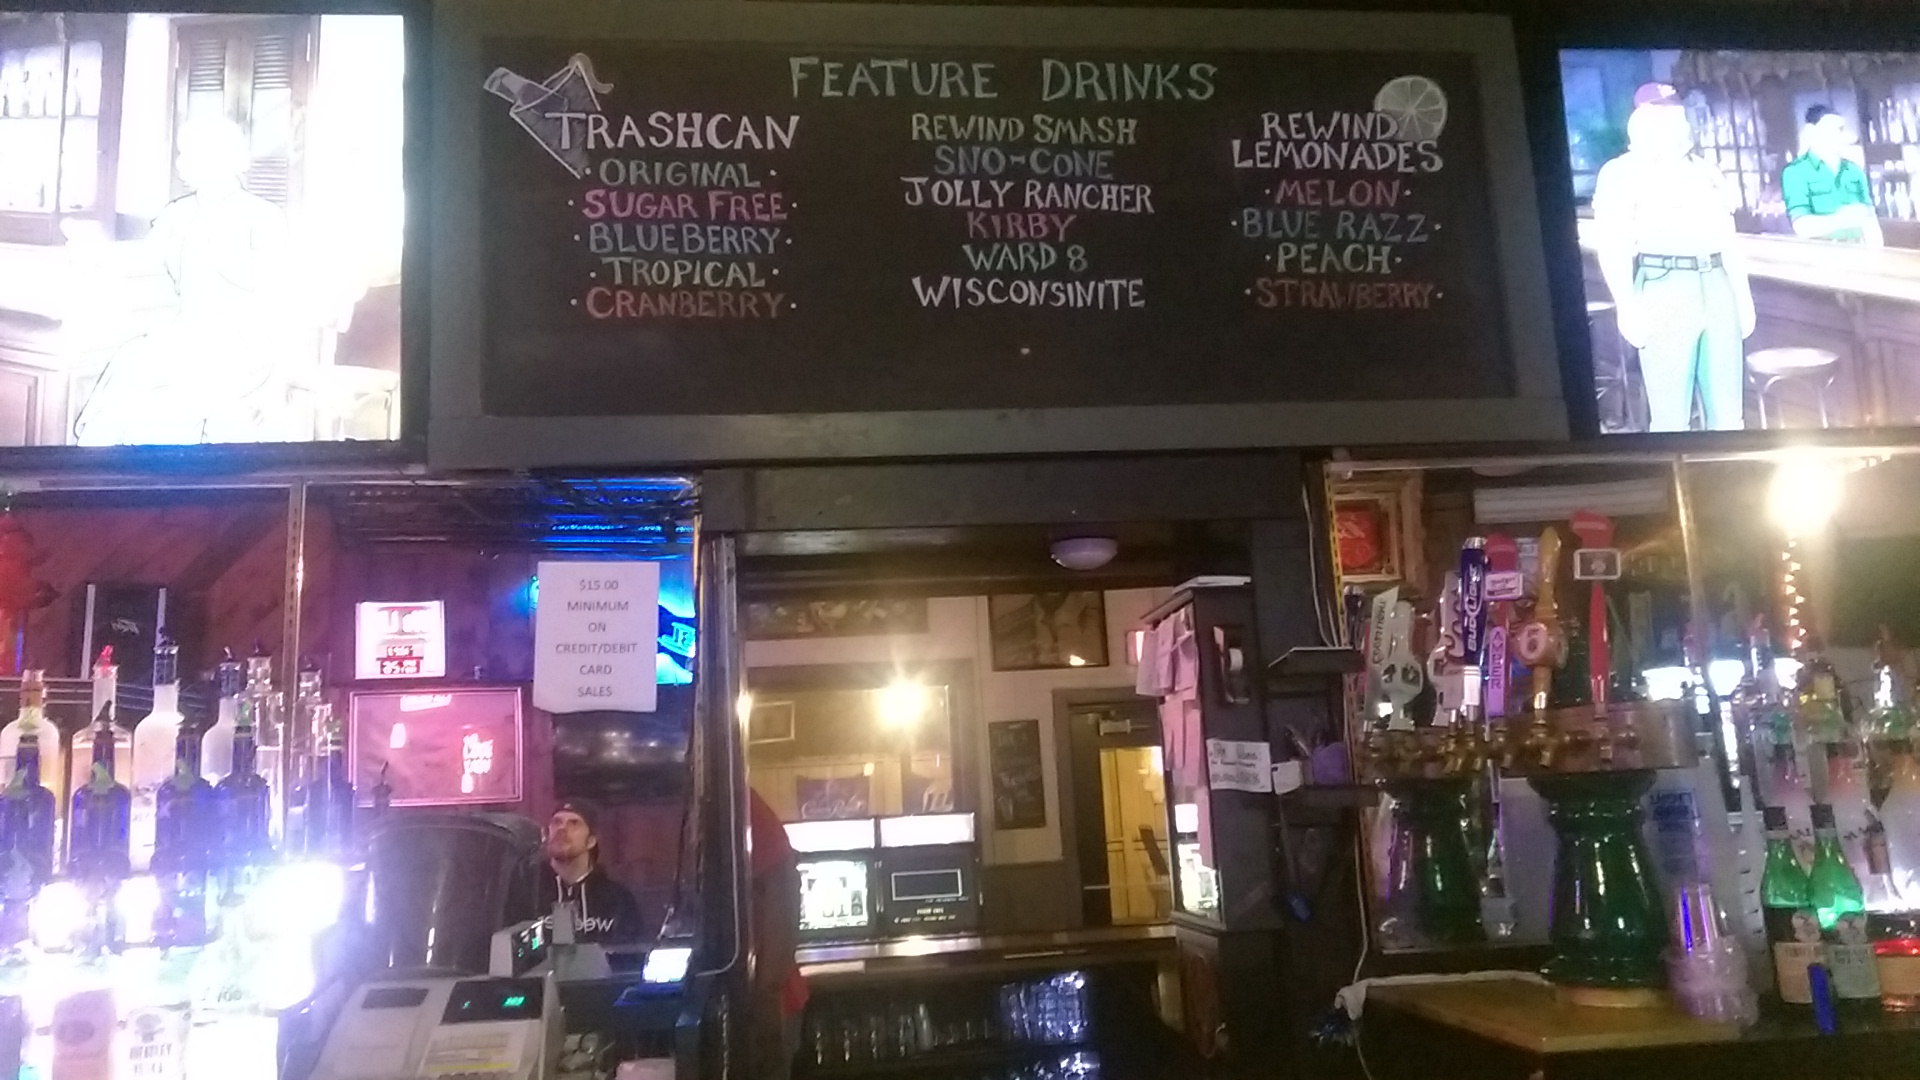 FEATURE DRINKS
TRASHCAN
• ORIGINAL •
• SUGAR FREE •
• BLUEBERRY •
• TROPICAL •
• CRANBERRY •
REWIND SMASH
SNO-CONE
JOLLY RANCHER
KIRBY
WARD 8
WISCONSINITE
REWIND
LEMONADES
• MELON •
• BLUE RAZZ •
• PEACH •
• STRAWBERRY •
$15.00
MINIMUM
ON
CREDIT/DEBIT
CARD
SALES
BUD LIGHT
AMBER